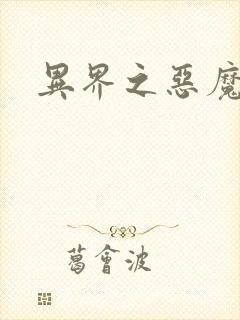 異界之惡魔
葛會波